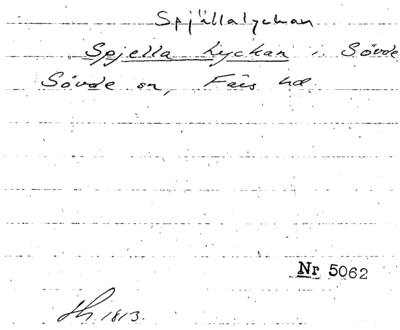 Spjällalyckan
Spjella Lyckan i Sövde
Sövde sn, Färs hd.
Nr 5062
1813.